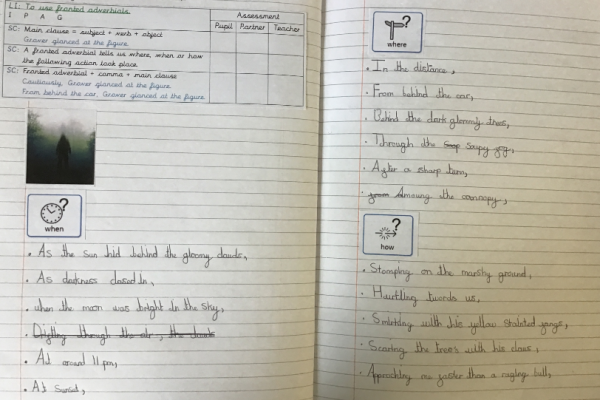 LI: To use fronted adverbials
I P A G
Assessment
Pupil Partner Teacher
SC: Main clause = subject + verb + object
Graver glanced at the figure.
SC: A fronted adverbial tells us where, when or how
the following action took place
SC: Fronted adverbial + comma + main clause
Cautiously, Graver glanced at the figure.
From behind the car, Graver glanced at the figure.
when
• As the sun hid behind the gloomy clouds,
• As darkness closed in,
• when the moon was bright in the sky,
• through the air, the clouds
• At around 11pm,
• At sunset,
where
• In the distance,
• From behind the car,
• Behind the dark gloomy trees,
• Through the soupy
• After a sharp turn,
• the
how
• Stomping on the marshy ground,
• Hurtling twords us,
• with his yellow
• the trees with his claws,
• Approching me faster than a raging bull,